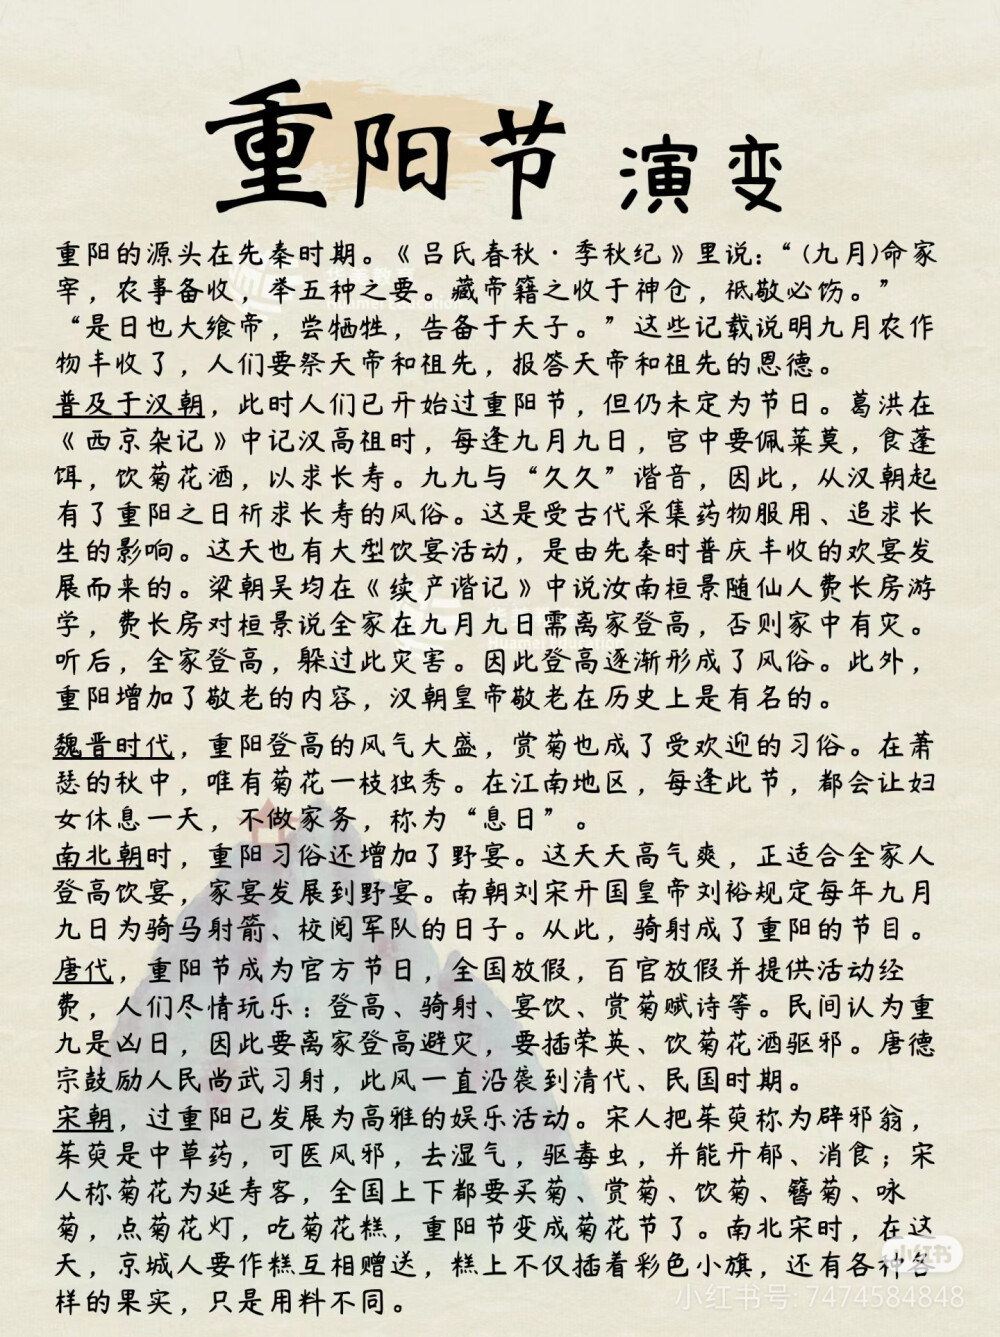 重阳节 演变
重阳的源头在先秦时期。《吕氏春秋·季秋纪》里说：“(九月)命家
宰，农事备收，举五种之要。藏帝籍之收于神仓，祗敬必饬。”
“是日也大飨帝，尝牺牲，告备于天子。”这些记载说明九月农作
物丰收了，人们要祭天帝和祖先，报答天帝和祖先的恩德。
普及于汉朝，此时人们已开始过重阳节，但仍未定为节日。葛洪在
《西京杂记》中记汉高祖时，每逢九月九日，宫中要佩莱莫，食蓬
饵，饮菊花酒，以求长寿。九九与“久久”谐音，因此，从汉朝起
有了重阳之日祈求长寿的风俗。这是受古代采集药物服用、追求长
生的影响。这天也有大型饮宴活动，是由先秦时普庆丰收的欢宴发
展而来的。梁朝吴均在《续产谐记》中说汝南桓景随仙人费长房游
学，费长房对桓景说全家在九月九日需离家登高，否则家中有灾。
听后，全家登高，躲过此灾害。因此登高逐渐形成了风俗。此外，
重阳增加了敬老的内容，汉朝皇帝敬老在历史上是有名的。
魏晋时代，重阳登高的风气大盛，赏菊也成了受欢迎的习俗。在萧
瑟的秋中，唯有菊花一枝独秀。在江南地区，每逢此节，都会让妇
女休息一天，不做家务，称为“息日”。
南北朝时，重阳习俗还增加了野宴。这天天高气爽，正适合全家人
登高饮宴，家宴发展到野宴。南朝刘宋开国皇帝刘裕规定每年九月
九日为骑马射箭、校阅军队的日子。从此，骑射成了重阳的节目。
唐代，重阳节成为官方节日，全国放假，百官放假并提供活动经
费，人们尽情玩乐：登高、骑射、宴饮、赏菊赋诗等。民间认为重
九是凶日，因此要离家登高避灾，要插荣英、饮菊花酒驱邪。唐德
宗鼓励人民尚武习射，此风一直沿袭到清代、民国时期。
宋朝，过重阳已发展为高雅的娱乐活动。宋人把茱萸称为辟邪翁，
茱萸是中草药，可医风邪，去湿气，驱毒虫，并能开郁、消食；宋
人称菊花为延寿客，全国上下都要买菊、赏菊、饮菊、簪菊、咏
菊，点菊花灯，吃菊花糕，重阳节变成菊花节了。南北宋时，在这
天，京城人要作糕互相赠送，糕上不仅插着彩色小旗，还有各种各
样的果实，只是用料不同。
华美教育
Huamei Education
华美教育
Huamei Education
小红书
小红书号: 7474584848